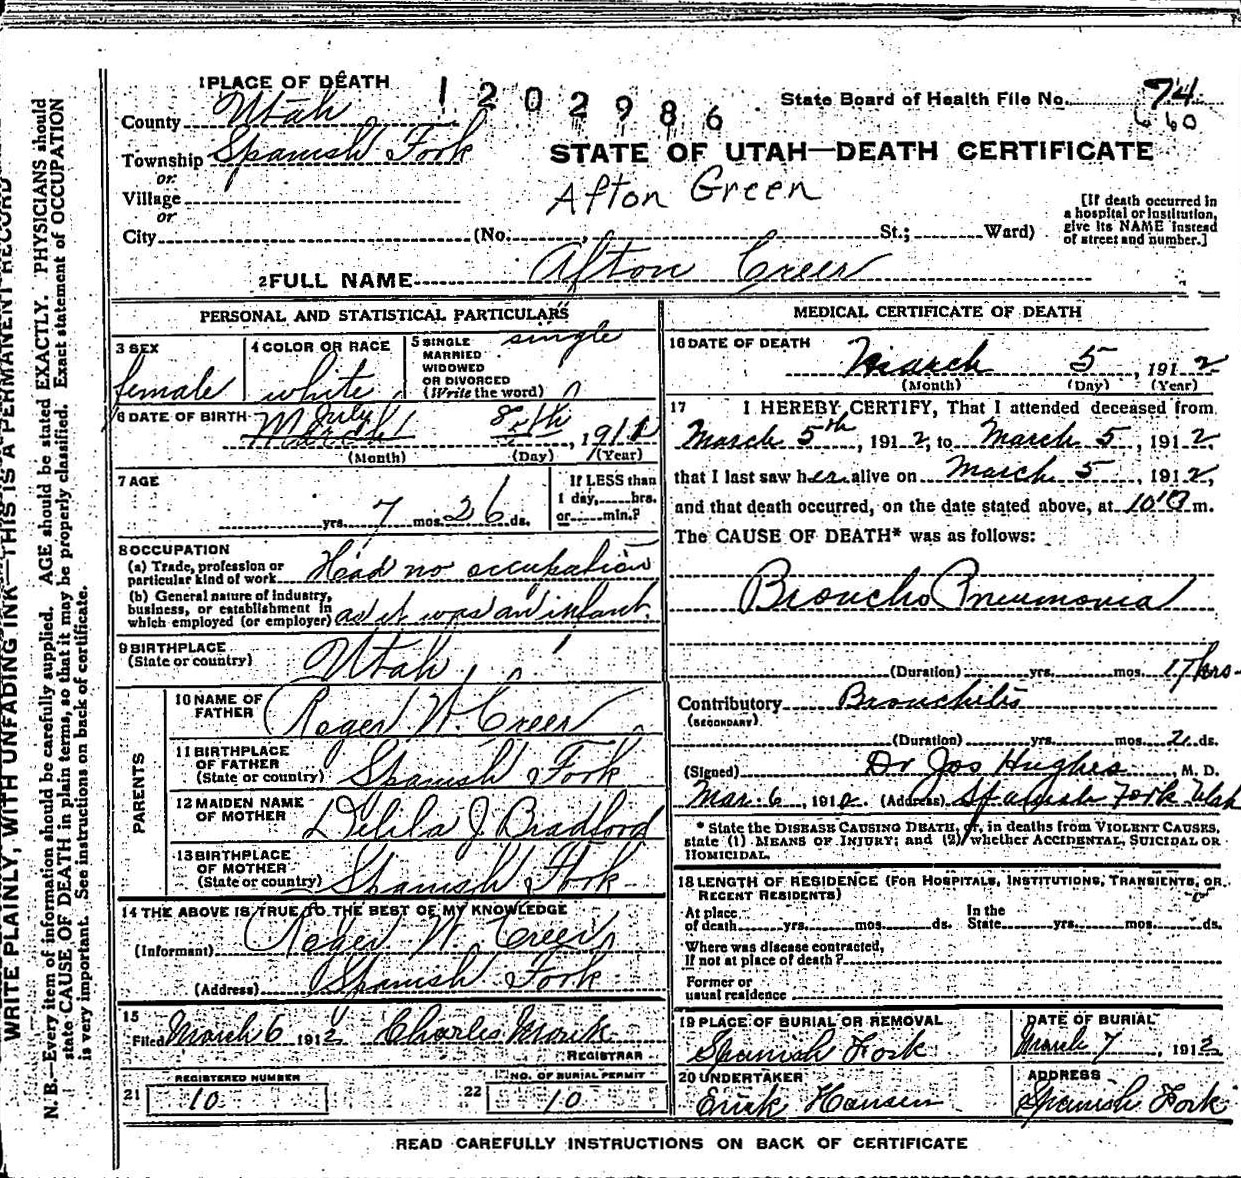 1 PLACE OF DEATH
1202986
State Board of Health File No. 74
660
County Utah
Township Spanish Fork
or
Village
or
City (No. St.; Ward)
STATE OF UTAH—DEATH CERTIFICATE
Afton Green
[If death occurred in
a hospital or institution,
give its NAME instead
of street and number.]
2 FULL NAME Afton Creer
PERSONAL AND STATISTICAL PARTICULARS
3 SEX
female
4 COLOR OR RACE
white
5 SINGLE
MARRIED
WIDOWED
OR DIVORCED
(Write the word)
single
6 DATE OF BIRTH
March July 8th, 1911
(Month) (Day) (Year)
7 AGE
yrs. 7 mos. 26 ds.
If LESS than
1 day, hrs.
or min.?
8 OCCUPATION
(a) Trade, profession or
particular kind of work Had no occupation
(b) General nature of industry,
business, or establishment in
which employed (or employer) as it was an infant.
9 BIRTHPLACE
(State or country) Utah
PARENTS
10 NAME OF
FATHER Roger W. Creer
11 BIRTHPLACE
OF FATHER
(State or country) Spanish Fork
12 MAIDEN NAME
OF MOTHER Delila J Bradford
13 BIRTHPLACE
OF MOTHER
(State or country) Spanish Fork
14 THE ABOVE IS TRUE TO THE BEST OF MY KNOWLEDGE
(Informant) Roger W. Creer
(Address) Spanish Fork
15
Filed March 6 1912 Charles Monk
REGISTRAR
21 REGISTERED NUMBER
10
22 NO. OF BURIAL PERMIT
10
MEDICAL CERTIFICATE OF DEATH
16 DATE OF DEATH
March 5, 1912
(Month) (Day) (Year)
17 I HEREBY CERTIFY, That I attended deceased from
March 5th, 1912, to March 5, 1912
that I last saw her alive on March 5, 1912,
and that death occurred, on the date stated above, at m.
The CAUSE OF DEATH* was as follows:
Broncho Pneumonia
(Duration) yrs. mos. 17 hrs
Contributory Bronchitis
(SECONDARY)
(Duration) yrs. mos. 2 ds.
(Signed) Dr Jos Hughes, M. D.
Mar. 6, 1912 (Address) Spanish Fork Utah
* State the DISEASE CAUSING DEATH, or, in deaths from VIOLENT CAUSES,
state (1) MEANS OF INJURY; and (2) whether ACCIDENTAL, SUICIDAL OR
HOMICIDAL.
18 LENGTH OF RESIDENCE (FOR HOSPITALS, INSTITUTIONS, TRANSIENTS, OR
RECENT RESIDENTS)
At place
of death yrs. mos. ds.
In the
State yrs. mos. ds.
Where was disease contracted,
If not at place of death?
Former or
usual residence
19 PLACE OF BURIAL OR REMOVAL
Spanish Fork
DATE OF BURIAL
March 7, 1912
20 UNDERTAKER
Erick Hansen
ADDRESS
Spanish Fork
READ CAREFULLY INSTRUCTIONS ON BACK OF CERTIFICATE
WRITE PLAINLY, WITH UNFADING INK—THIS IS A PERMANENT RECORD
N. B.—Every item of information should be carefully supplied. AGE should be stated EXACTLY. PHYSICIANS should
state CAUSE OF DEATH in plain terms, so that it may be properly classified. Exact statement of OCCUPATION
is very important. See instructions on back of certificate.